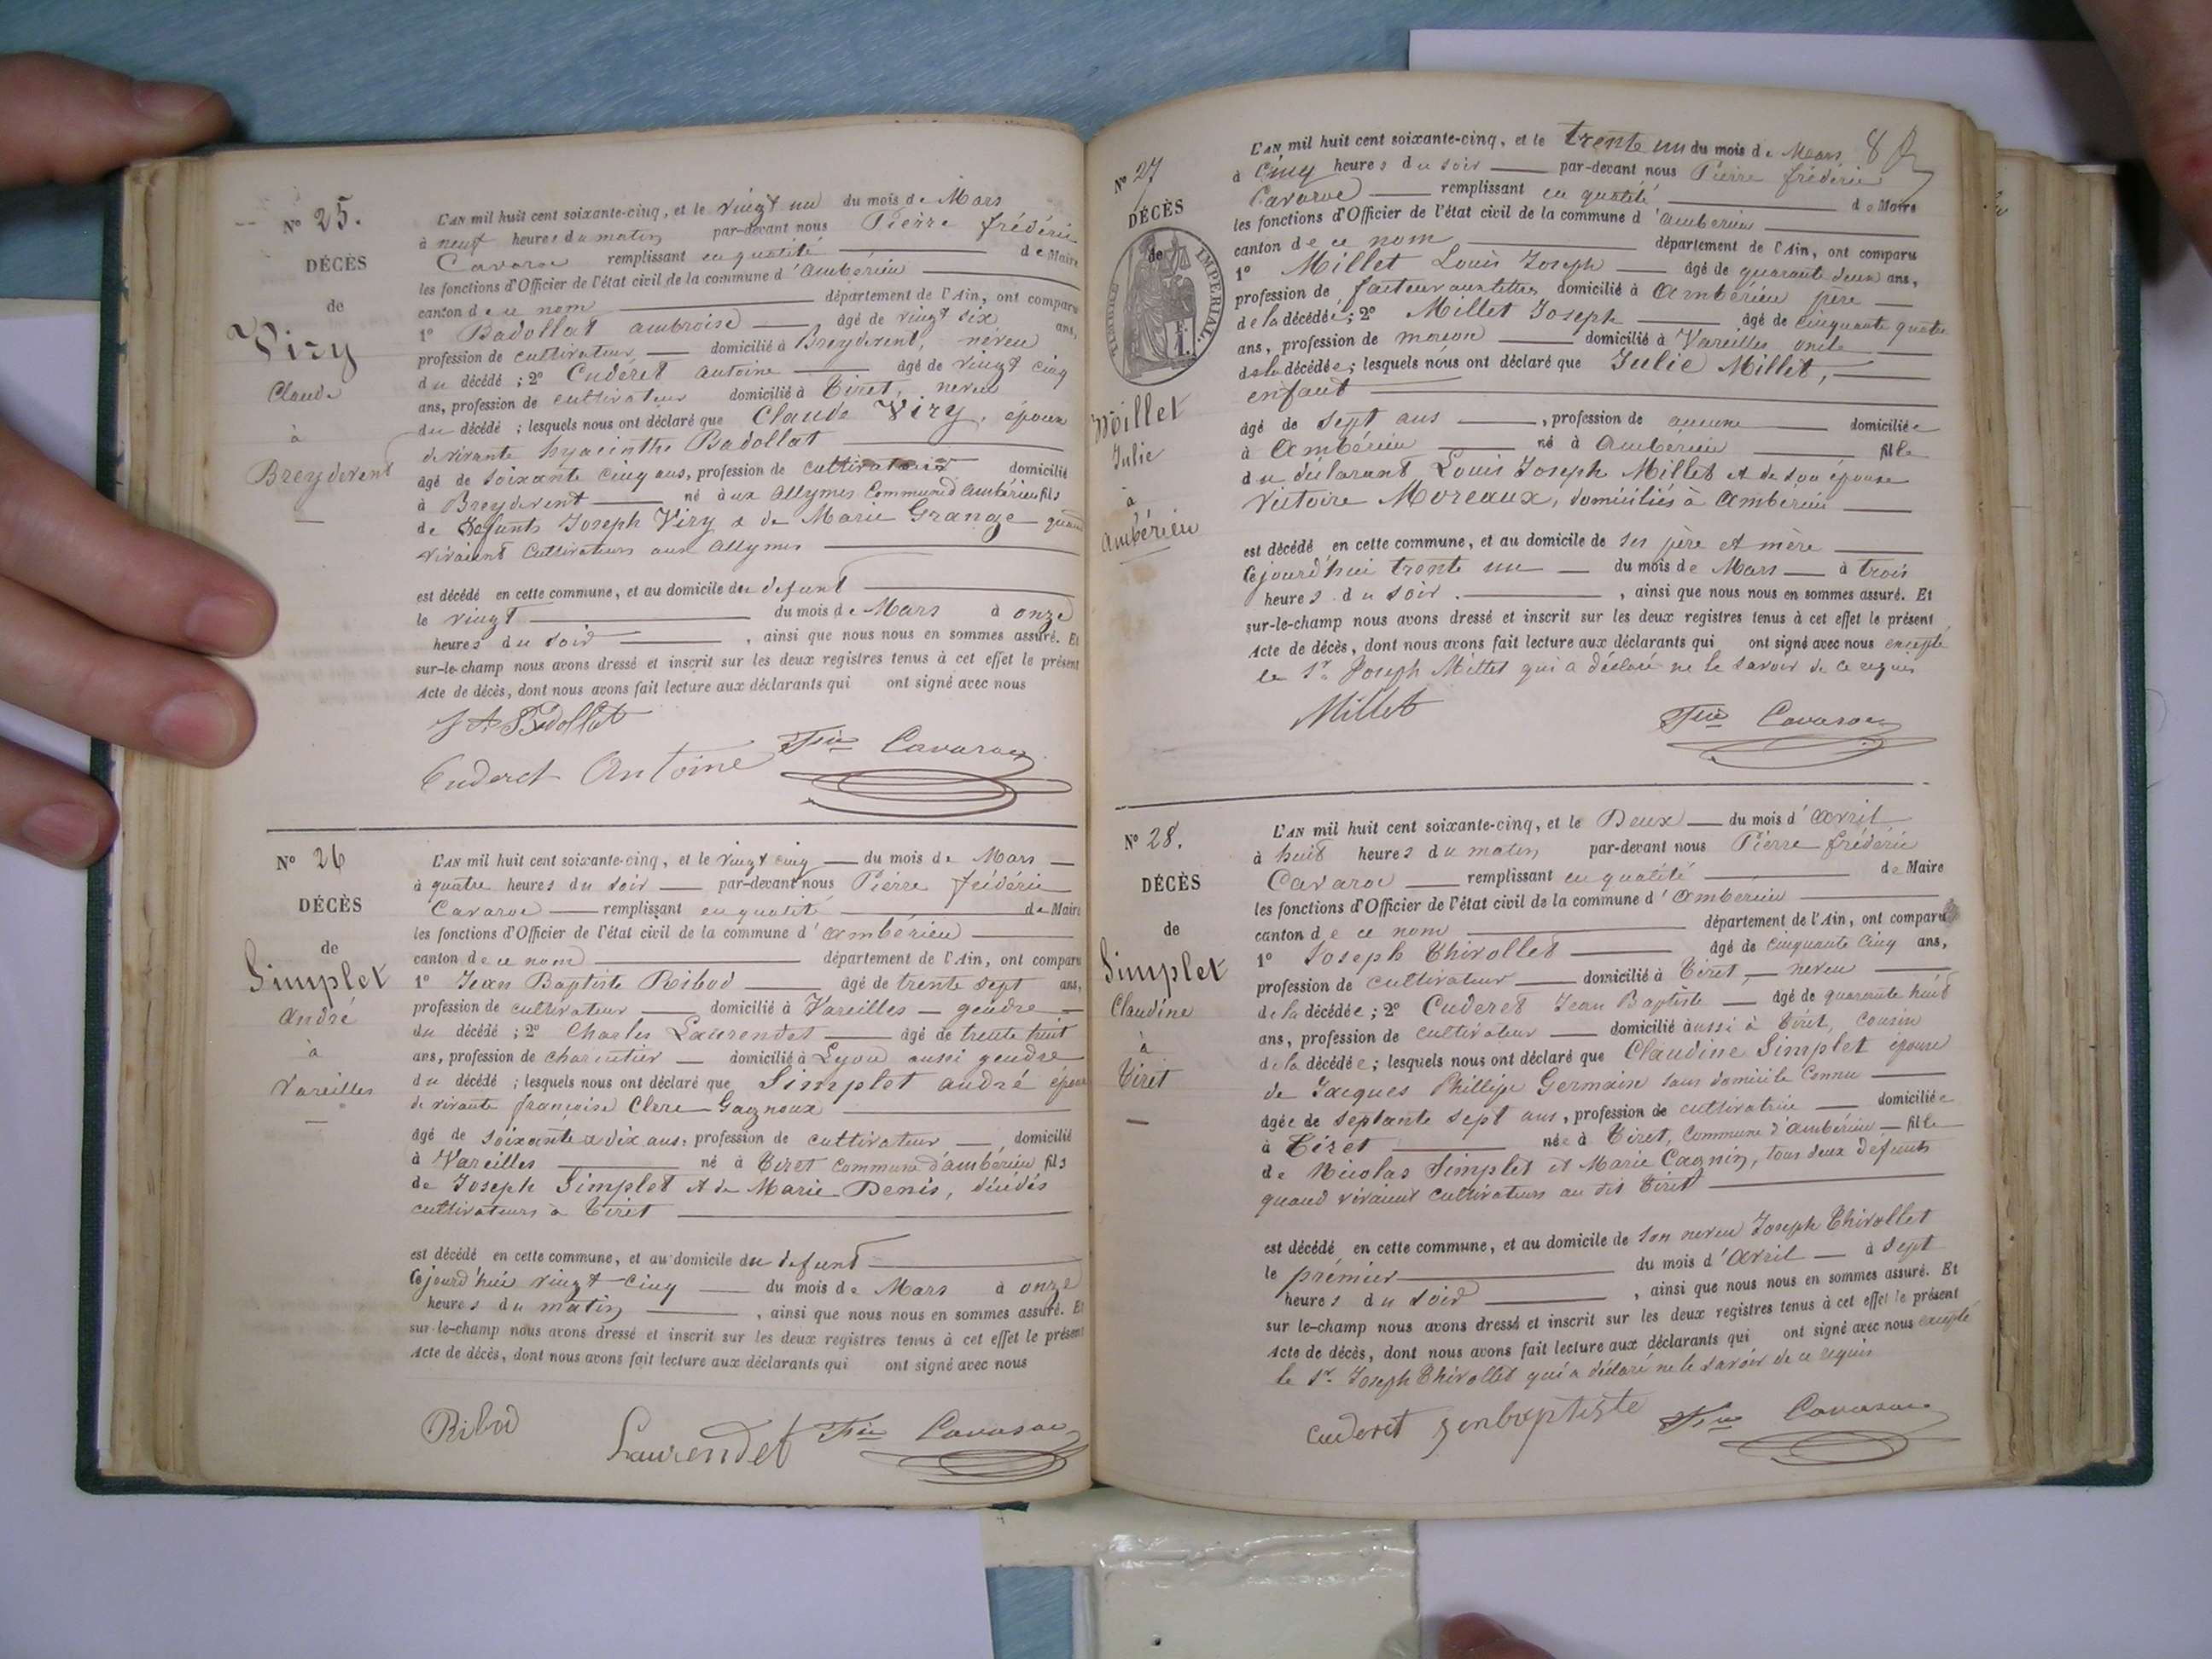 N° 25.
DÉCÈS
de
Viry
Claude
à
Breydevent
L'AN mil huit cent soixante-cinq, et le vingt un du mois de Mars
à neuf heures du matin par-devant nous Pierre frédéric
Cavaroc remplissant en qualité de Maire
les fonctions d'Officier de l'état civil de la commune d'ambérieu
canton de ce nom département de l'Ain, ont comparu
1° Badollat ambroise âgé de vingt six ans,
profession de cultivateur domicilié à Breydevent, neveu
du décédé ; 2° Cuderet antoine âgé de vingt cinq
ans, profession de cultivateur domicilié à Tiret, neveu
du décédé ; lesquels nous ont déclaré que Claude Viry, époux
de vivante hyacinthe Badollat
âgé de soixante cinq ans, profession de cultivateur domicilié
à Breydevent né aux allymes Commune d'ambérieu fils
de Defunts Joseph Viry & de Marie Grange quand
vivaient Cultivateurs aux allymes
est décédé en cette commune, et au domicile du defunt
le vingt du mois de Mars à onze
heures du soir , ainsi que nous nous en sommes assuré. Et
sur-le-champ nous avons dressé et inscrit sur les deux registres tenus à cet effet le présent
Acte de décès, dont nous avons fait lecture aux déclarants qui ont signé avec nous
Badollat
Cuderet Antoine Fric Cavaroc
N° 26
DÉCÈS
de
Simplet
André
à
Vareilles
L'AN mil huit cent soixante-cinq, et le vingt cinq du mois de Mars
à quatre heures du soir par-devant nous Pierre frédéric
Cavaroc remplissant en qualité de Maire
les fonctions d'Officier de l'état civil de la commune d'ambérieu
canton de ce nom département de l'Ain, ont comparu
1° Jean Baptiste Ribod âgé de trente sept ans,
profession de cultivateur domicilié à Vareilles gendre
du décédé ; 2° Charles Laurendet âgé de trente huit
ans, profession de charcutier domicilié à Lyon aussi gendre
du décédé ; lesquels nous ont déclaré que Simplet andré époux
de vivante françoise Clere Gagneux
âgé de soixante & dix ans, profession de cultivateur domicilié
à Vareilles né à Tiret commune d'ambérieu fils
de Joseph Simplet et de Marie Denis, décédés
cultivateurs à Tiret
est décédé en cette commune, et au domicile du defunt
cejourd'hui vingt cinq du mois de Mars à onze
heures du matin , ainsi que nous nous en sommes assuré. Et
sur-le-champ nous avons dressé et inscrit sur les deux registres tenus à cet effet le présent
Acte de décès, dont nous avons fait lecture aux déclarants qui ont signé avec nous
Ribod Laurendet Fric Cavaroc
8
N° 27
DÉCÈS
de
TIMBRE IMPÉRIAL
Millet
Julie
à
ambérieu
L'AN mil huit cent soixante-cinq, et le trente un du mois de Mars
à Cinq heures du soir par-devant nous Pierre frédéric
Cavaroc remplissant en qualité de Maire
les fonctions d'Officier de l'état civil de la commune d'ambérieu
canton de ce nom département de l'Ain, ont comparu
1° Millet Louis Joseph âgé de quarante deux ans,
profession de facteur aux lettres domicilié à Ambérieu père
de la décédée ; 2° Millet Joseph âgé de cinquante quatre
ans, profession de maçon domicilié à Vareilles oncle
de la décédée ; lesquels nous ont déclaré que Julie Millet,
enfant
âgé de sept ans , profession de aucune domiciliée
à Ambérieu né à Ambérieu fille
du déclarant Louis Joseph Millet et de son épouse
Victoire Moreaux, domiciliés à Ambérieu
est décédé en cette commune, et au domicile de ses père et mère
cejourd'hui trente un du mois de Mars à trois
heures du soir , ainsi que nous nous en sommes assuré. Et
sur-le-champ nous avons dressé et inscrit sur les deux registres tenus à cet effet le présent
Acte de décès, dont nous avons fait lecture aux déclarants qui ont signé avec nous excepté
le Sr. Joseph Millet qui a déclaré ne le savoir de ce requis
Millet Fric Cavaroc
N° 28.
DÉCÈS
de
Simplet
Claudine
à
Tiret
L'AN mil huit cent soixante-cinq, et le Deux du mois d'avril
à huit heures du matin par-devant nous Pierre frédéric
Cavaroc remplissant en qualité de Maire
les fonctions d'Officier de l'état civil de la commune d'ambérieu
canton de ce nom département de l'Ain, ont comparu
1° Joseph Thirollet âgé de cinquante cinq ans,
profession de cultivateur domicilié à Tiret, neveu
de la décédée ; 2° Cuderet Jean Baptiste âgé de quarante huit
ans, profession de cultivateur domicilié aussi à Tiret, cousin
de la décédée ; lesquels nous ont déclaré que Claudine Simplet épouse
de Jacques Phillipe Germain sans domicile connu
âgée de septante sept ans, profession de cultivatrice domiciliée
à Tiret née à Tiret, Commune d'ambérieu fille
de Nicolas Simplet et Marie Cagnin, tous deux défunts
quand vivaient cultivateurs au dit Tiret
est décédé en cette commune, et au domicile de son neveu Joseph Thirollet
le prémier du mois d'avril à sept
heures du soir , ainsi que nous nous en sommes assuré. Et
sur le-champ nous avons dressé et inscrit sur les deux registres tenus à cet effet le présent
Acte de décès, dont nous avons fait lecture aux déclarants qui ont signé avec nous excepté
le Sr. Joseph Thirollet qui a déclaré ne le savoir de ce requis
cuderet jenbaptiste Fric Cavaroc